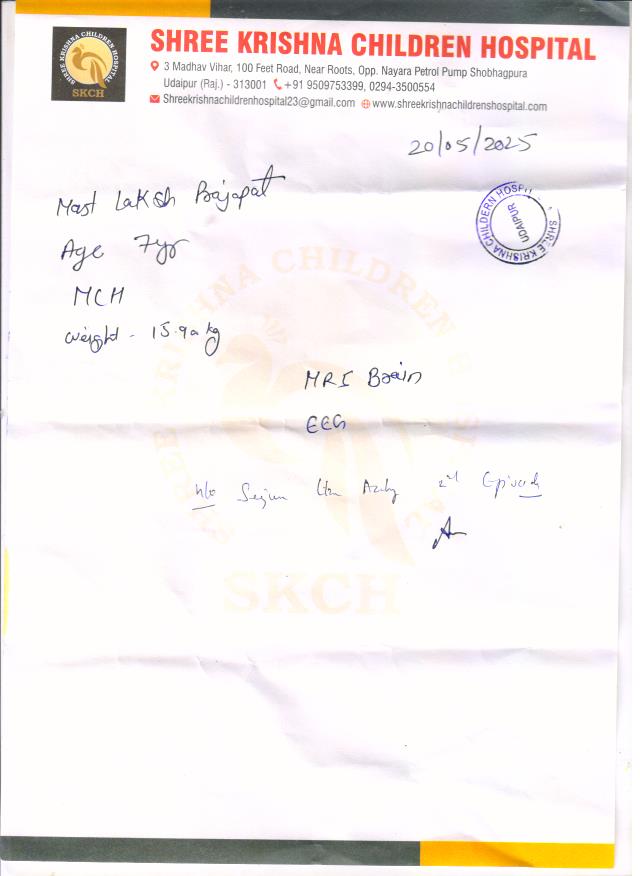 SHREE KRISHNA CHILDREN HOSPITAL
3 Madhav Vihar, 100 Feet Road, Near Roots, Opp. Nayara Petrol Pump Shobhagpura
Udaipur (Raj.) - 313001 +91 9509753399, 0294-3500554
Shreekrishnachildrenhospital23@gmail.com www.shreekrishnachildrenshospital.com
SHREE KRISHNA CHILDREN HOSPITAL
SKCH
20/05/2025
SHREE KRISHNA CHILDERN HOSPIT
UDAIPUR
Mast Laksh Prajapat
Age 7yr
MCH
weight - 15.90 kg
MRI Brain
EEG
h/o 2nd Episode
SHREE KRISHNA CHILDREN H
SKCH